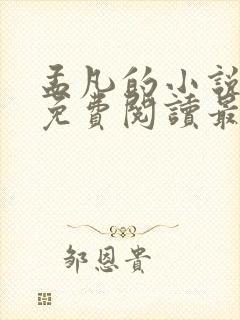 孟凡的小說
免費閱讀最
鄒恩貴